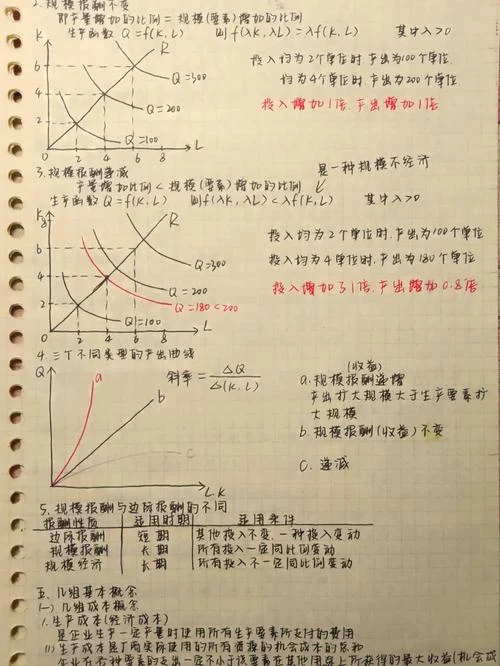 2.规模报酬不变
即产量增加的比例 = 规模(要素)增加的比例
生产函数 Q=f(K,L) 则 f(λK,λL)=λf(K,L) 其中λ>0
K
6
4
2
R
Q=300
Q=200
Q=100
2 4 6 8 L
投入均为2个单位时,产出为100个单位
均为4个单位时,产出为200个单位
投入增加1倍,产出增加1倍
3.规模报酬递减
产量增加比例 < 规模(要素)增加的比例
是一种规模不经济
生产函数 Q=f(K,L) 则f(λK,λL)<λf(K,L) 其中λ>0
K
8
6
4
2
R
Q=300
Q=200
Q=180<200
Q=100
2 4 6 8 L
投入均为2个单位时,产出为100个单位
投入均为4个单位时,产出为180个单位
投入增加了1倍,产出增加0.8倍
4.三个不同类型的产出曲线
Q
a
b
c
L.K
斜率=ΔQ/Δ(K,L)
(收益)
a.规模报酬递增
产出扩大规模大于生产要素扩
大规模
b.规模报酬(收益)不变
C.递减
5.规模报酬与边际报酬的不同
报酬性质 适用时期 适用条件
边际报酬 短期 其他投入不变,一种投入变动
规模报酬 长期 所有投入一定同比例变动
规模经济 长期 所有投入不一定同比例变动
五.几组基本概念
(一)几组成本概念
1.生产成本(经济成本)
是企业生产一定产量时使用所有生产要素所支付的费用
(1)生产成本是厂商实际使用的所有资源的机会成本的总和
企业在各种要素的支出一定不小于该要素在其他用途上所获得的最大收益(机会成